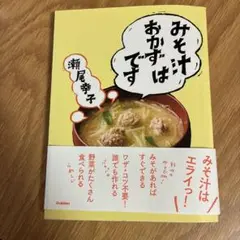 みそ汁
おかずは
です
瀬尾幸子
みそ汁は
エライっ!
みそがあれば
すぐできる
ワザ・コツ不要!
誰でも作れる
野菜がたくさん
食べられる
Gakken